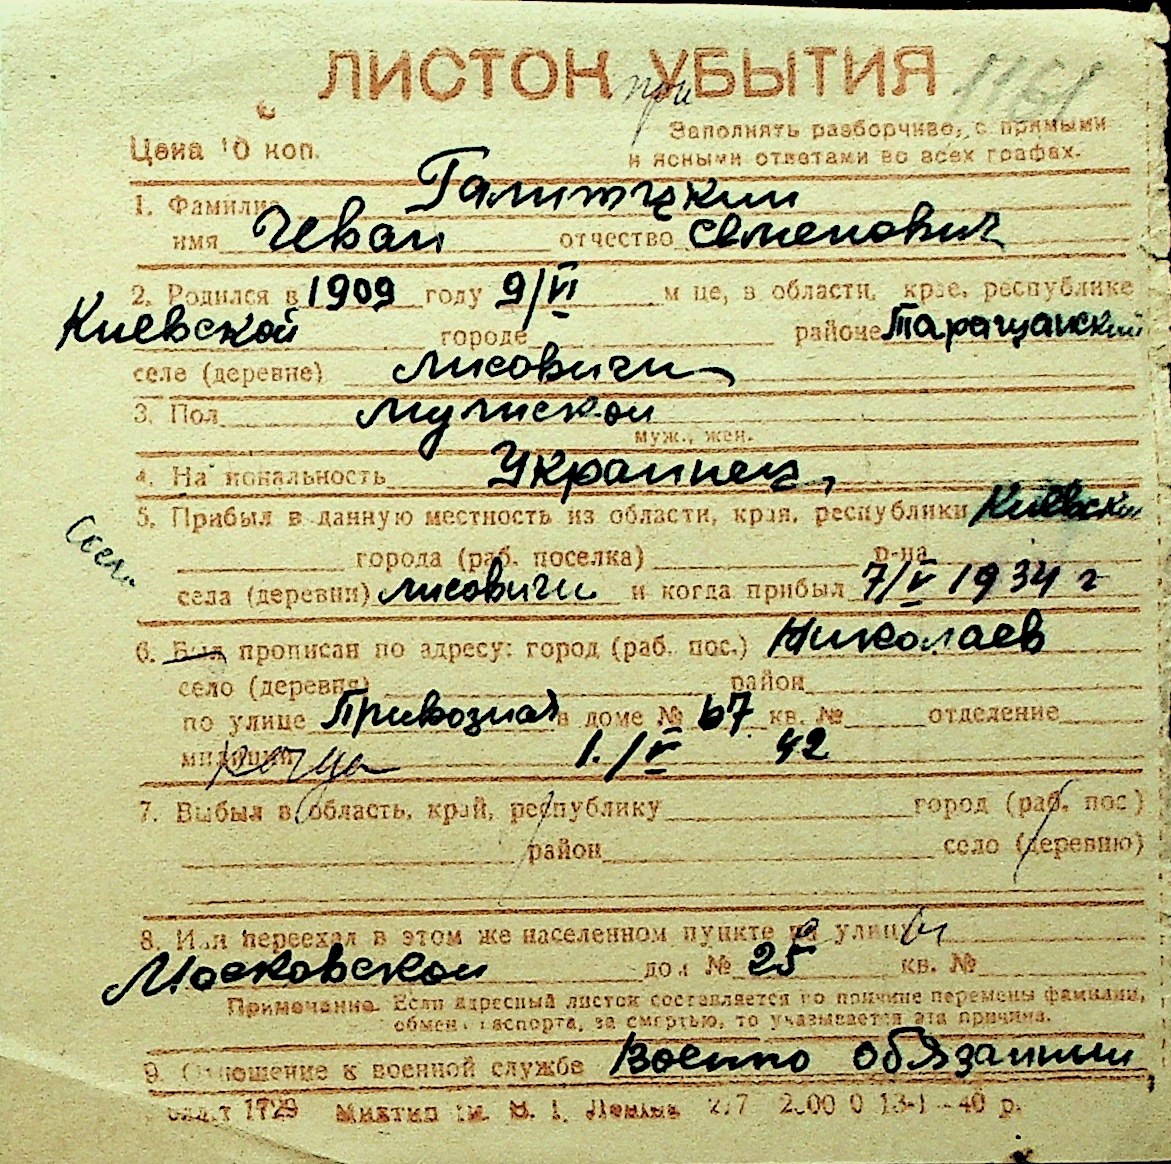 ЛИСТОК при УБЫТИЯ 1161
Цена 10 коп.
Заполнять разборчиво, с прямыми
и ясными ответами во всех графах.
1. Фамилия Галитцкии
имя Иван отчество Семенович
2. Родился в 1909 году 9/VI м-це, в области, крае, республике
Киевской городе районе Таращанский
селе (деревне) Лисовичи
3. Пол Мужской
муж., жен.
4. Национальность Украинец,
5. Прибыл в данную местность из области, края, республики Киевский
города (раб. поселка) р-на
села (деревни) Лисовичи и когда прибыл 7/V 1934 г
6. Был прописан по адресу: город (раб. пос.) Николаев
село (деревня) район
по улице Привозная в доме № 67 кв. № отделение
милиции когда 1./V 42
7. Выбыл в область, край, республику город (раб. пос.)
район село (деревню)
8. Или переехал в этом же населенном пункте на улицы
Московской дом № 25 кв. №
Примечание. Если адресный листок составляется по причине перемены фамилии,
обмена паспорта, за смертью, то указывается эта причина.
9. Отношение к военной службе Военно обязанный
1729 им. В. И. Ленина